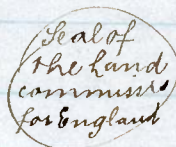 Seal of
the Land
commissrs
for England